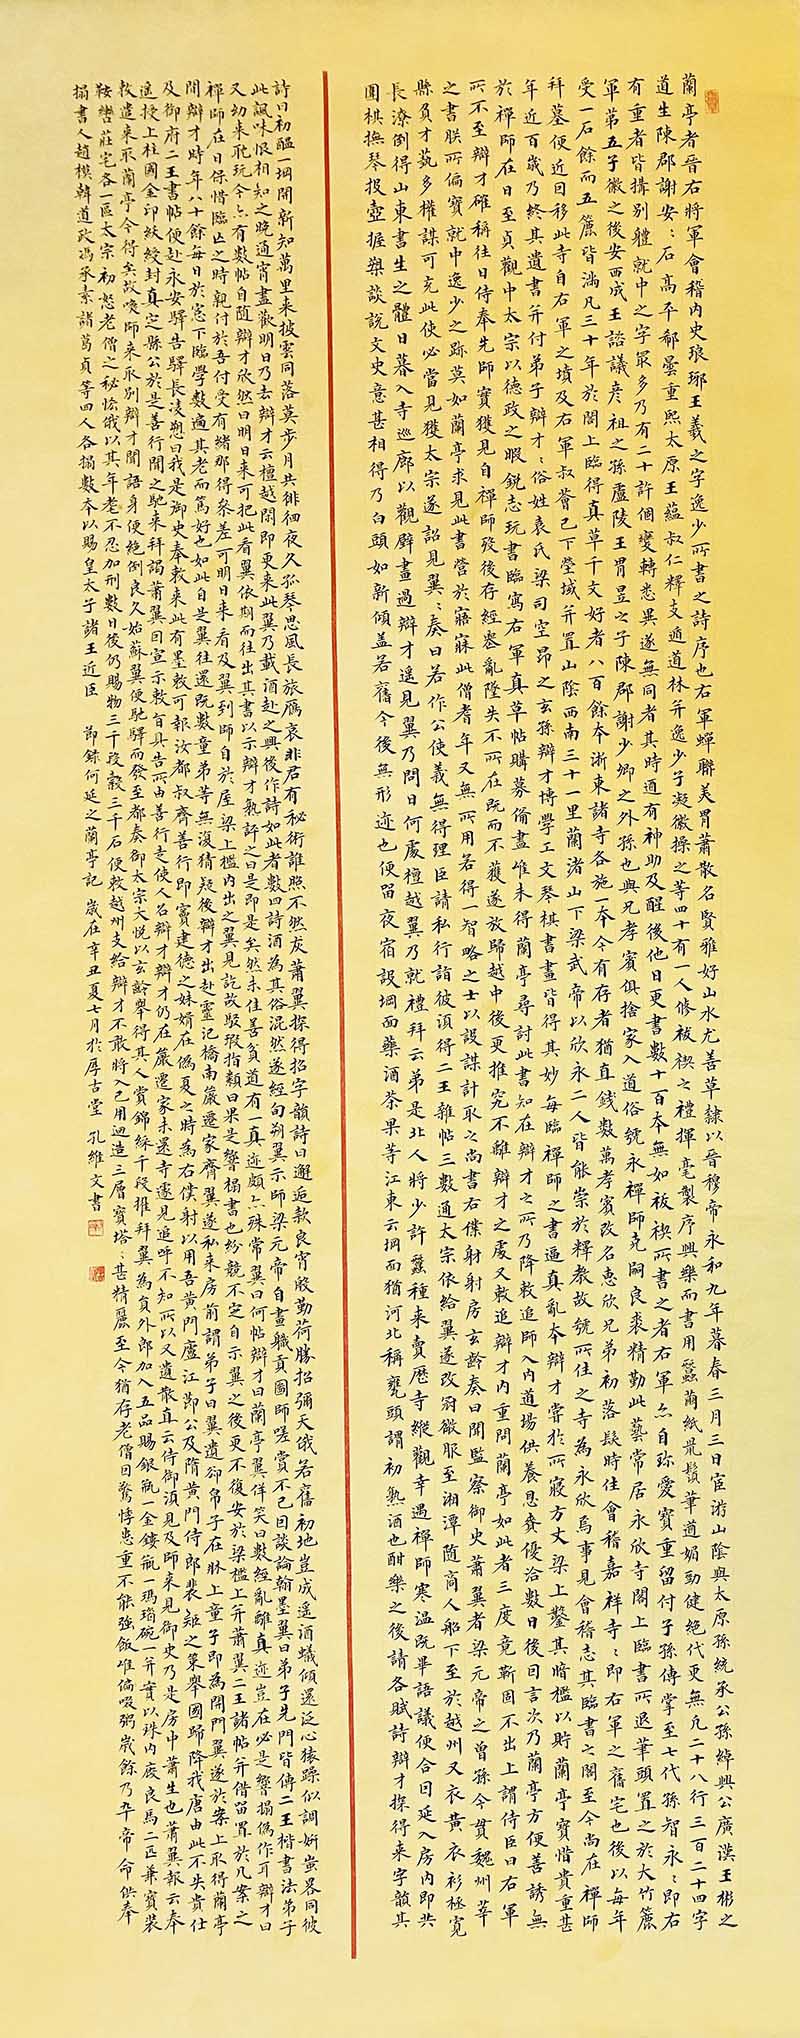 蘭亭者晉右將軍會稽內史琅琊王羲之字逸少所書之詩序也右軍蟬聯美胄蕭散名賢雅好山水尤善草隸以晉穆帝永和九年暮春三月三日宦游山陰與太原孫統承公孫綽興公廣漢王彬之
道生陳郡謝安:石高平郗曇重熙太原王蘊叔仁釋支遁道林并逸少子凝徽操之等四十有一人修祓禊之禮揮毫製序興樂而書用蠶繭紙鼠鬚筆遒媚勁健絕代更無凡二十八行三百二十四字
有重者皆搆別體就中之字最多乃有二十許個變轉悉異遂無同者其時迺有神助及醒後他日更書數十百本無如祓禊所書之者右軍亦自珍愛寶重留付子孫傳掌至七代孫智永:即右
軍第五子徽之後安西成王諮議彥祖之孫盧陵王胄昱之子陳郡謝少卿之外孫也與兄孝賓俱捨家入道俗號永禪師克嗣良裘精勤此藝常居永欣寺閣上臨書所退筆頭置之於大竹簏
受一石餘而五簏皆滿凡三十年於閣上臨得真草千文好者八百餘本浙東諸寺各施一本今有存者猶直錢數萬孝賓改名惠欣兄弟初落髮時住會稽嘉祥寺:即右軍之舊宅也後以每年
拜墓便近因移此寺自右軍之墳及右軍叔薈已下塋域并置山陰西南三十一里蘭渚山下梁武帝以欣永二人皆能崇於釋教故號所住之寺為永欣焉事見會稽志其臨書之閣至今尚在禪師
年近百歲乃終其遺書并付弟子辯才:俗姓袁氏梁司空昂之玄孫辯才博學工文琴棋書畫皆得其妙每臨禪師之書逼真亂本辯才嘗於所寢方丈梁上鑿其暗檻以貯蘭亭寶惜貴重甚
於禪師在日至貞觀中太宗以德政之暇銳志玩書臨寫右軍真草帖購募備盡唯未得蘭亭尋討此書知在辯才之所乃降敕追師入內道場供養恩賚優洽數日後因言次乃蘭亭方便善誘無
所不至辯才確稱往日侍奉先師實獲見自禪師歿後存經喪亂墜失不所在既而不獲遂放歸越中後更推究不離辯才之處又敕追辯才內重問蘭亭如此者三度竟靳固不出上謂侍臣曰右軍
之書朕所偏寶就中逸少之跡莫如蘭亭求見此書營於寤寐此僧耆年又無所用若得一智略之士以設謀計取之尚書右僕射房玄齡奏曰聞監察御史蕭翼者梁元帝之曾孫今貫魏州莘
縣負才藝多權謀可充此使必當見獲太宗遂詔見翼:奏曰若作公使義無得理臣請私行詣彼須得二王雜帖三數通太宗依給翼遂改冠微服至湘潭隨商人船下至於越州又衣黃衣衫極寬
長潦倒得山東書生之體日暮入寺巡廊以觀壁畫過辯才遙見翼乃問曰何處檀越翼乃就禮拜云弟是北人將少許蠶種來賣歷寺縱觀幸遇禪師寒溫既畢語議便合因延入房內即共
圍棋撫琴投壺握槊談說文史意甚相得乃白頭如新傾蓋若舊今後無形迹也便留夜宿設堈面藥酒茶果等江東云堈面猶河北稱甕頭謂初熟酒也酣樂之後請各賦詩辯才探得來字韻其
詩曰初醞一堈開新知萬里來披雲同落莫步月共徘徊夜久孤琴思風長旅雁哀非君有秘術誰照不然灰蕭翼探得招字韻詩曰邂逅款良宵殷勤荷勝招彌天俄若舊初地豈成遙酒蟻傾還泛心猿躁似調妍蚩略同彼
此諷味恨相知之晚通宵盡歡明日乃去辯才云檀越閑即更來此翼乃載酒赴之興後作詩如此者數四詩酒為其俗混然遂經旬朔翼示師梁元帝自畫職貢圖師嗟賞不已因談論翰墨翼曰弟子先門皆傳二王楷書法弟子
又幼來耽玩今亦有數帖自隨辯才欣然曰明日來可把此看翼依期而往出其書以示辯才熟詳之曰是即是矣然未佳善貧道有一真迹頗亦殊常翼曰何帖辯才曰蘭亭翼佯笑曰數經亂離真迹豈在必是響搨偽作耳辯才曰
禪師在日保惜臨亡之時親付於吾付受有緒那得參差可明日來看及翼到師自於屋梁上檻內出之翼見訖故駁瑕指纇曰果是響搨書也紛競不定自示翼之後更不復安於梁檻上并蕭翼二王諸帖并借留置於几案之
間辯才時年八十餘每日於窗下臨學數遍其老而篤好也如此自是翼往還既數童弟等無復猜疑後辯才出赴靈汜橋南嚴遷家齋翼遂私來房前謂弟子曰翼遺卻帛子在牀上童子即為開門翼遂於案上取得蘭亭
及御府二王書帖便赴永安驛告驛長凌愬曰我是御史奉敕來此有墨敕可報汝都叔齊善行即竇建德之妹婿在偽夏之時為右僕射以用吾黃門盧江節公及隋黃門侍郎裴矩之策舉國歸降我唐由此不失貴仕
遙授上柱國金印紱綬封真定縣公於是善行聞之馳來拜謁蕭翼因宣示敕旨具告所由善行走使人召辯才辯才仍在嚴遷家未還寺遽見追呼不知所以又遣散直云侍御須見及師來見御史乃是房中蕭生也蕭翼報云奉
敕遣來取蘭亭今得矣故喚師來取別辯才聞語身便絕倒良久始蘇翼便馳驛而發至都奏御太宗大悅以玄齡舉得其人賞錦綵千段擢拜翼為員外郎加入五品賜銀瓶一金鏤瓶一瑪瑙碗一并實以珠內廄良馬二匹兼寶裝
鞍轡莊宅各一區太宗初怒老僧之秘悋俄以其年耄不忍加刑數日後仍賜物三千段穀三千石便敕越州支給辯才不敢將入己用迴造三層寶塔:甚精麗至今猶存老僧因驚悸患重不能強飯唯偏啜粥歲餘乃卒帝命供奉
搨書人趙模韓道政馮承素諸葛貞等四人各搨數本以賜皇太子諸王近臣 節錄何延之蘭亭記 歲在辛丑夏七月於厚古堂 孔維文書